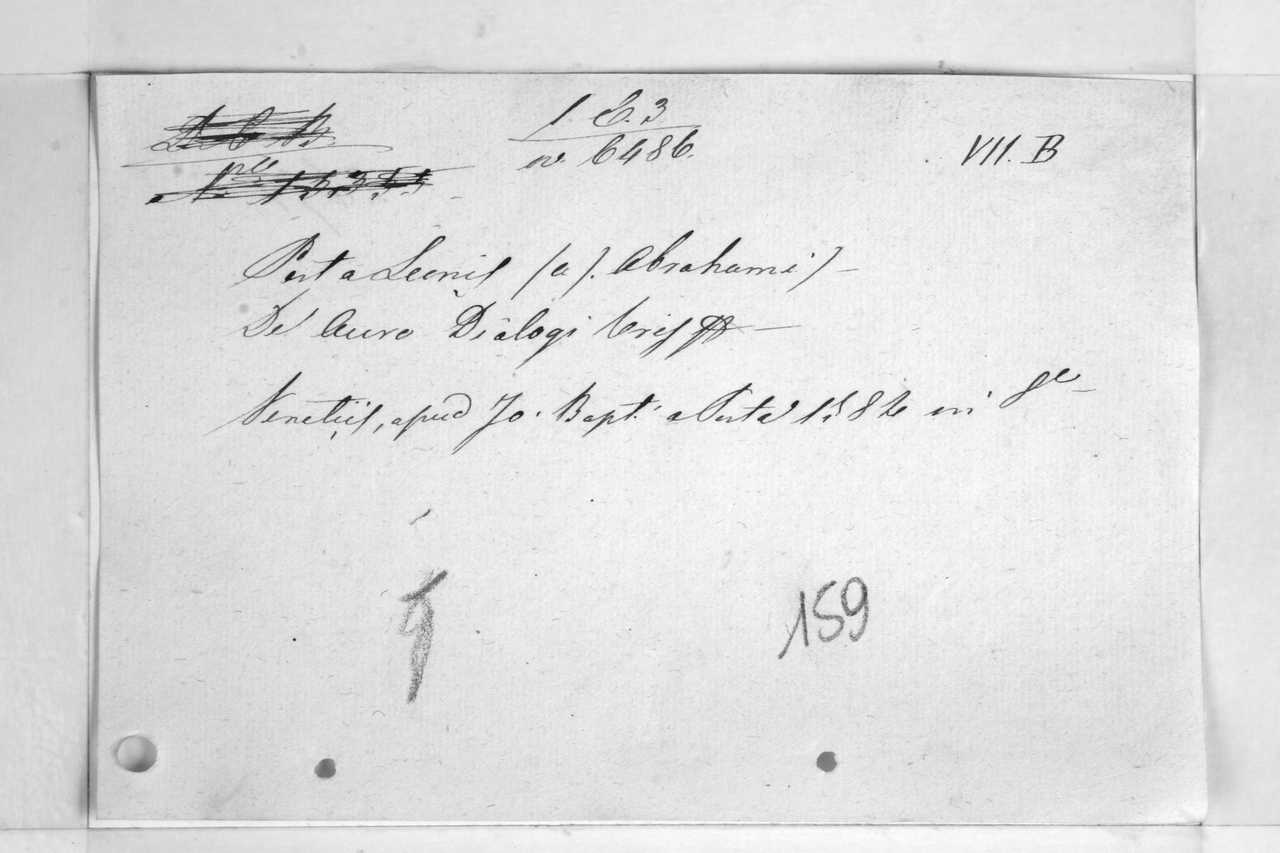 1 E. 3
n. 6486.
VII. B
Porta Leonis (a). Abrahami)
De Auro Dialogi tres
Venetiis, apud Jo. Bapt. a Porta 1586 in 8º
159